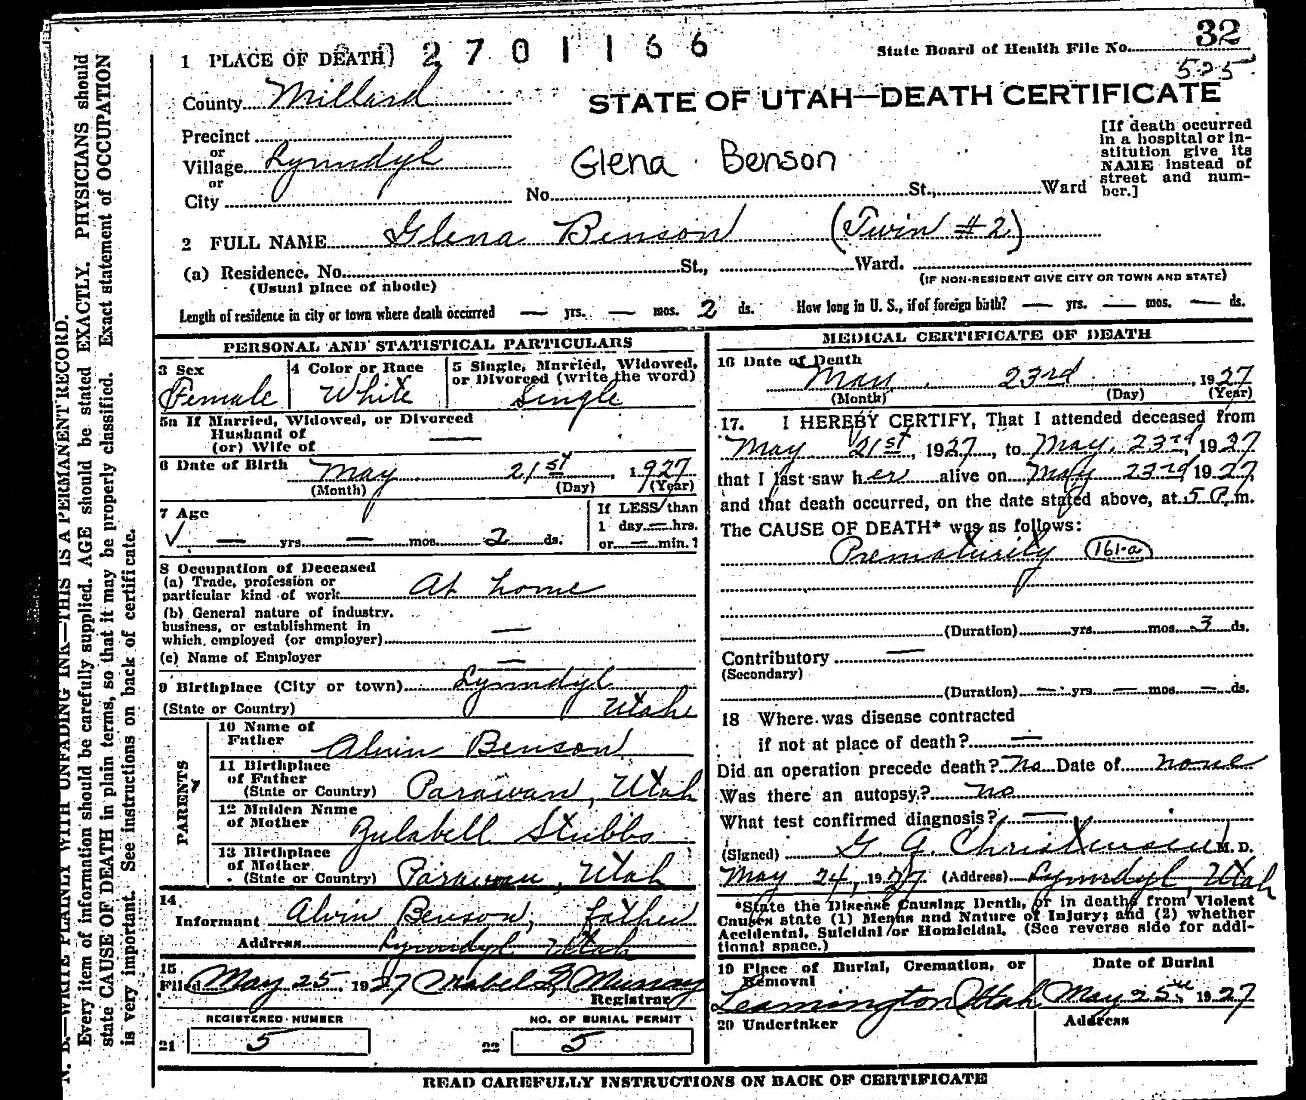 1 PLACE OF DEATH) 2701166
State Board of Health File No. 32
525
County Millard
STATE OF UTAH—DEATH CERTIFICATE
Precinct
or
Village Lynndyl
or
City
Glena Benson
No. St., Ward
[If death occurred
in a hospital or in-
stitution give its
NAME instead of
street and num-
ber.]
2 FULL NAME Glena Benson (Twin #2)
(a) Residence. No. St., Ward.
(Usual place of abode)
(IF NON-RESIDENT GIVE CITY OR TOWN AND STATE)
Length of residence in city or town where death occurred — yrs. — mos. 2 ds. How long in U. S., if of foreign birth? — yrs. — mos. — ds.
PERSONAL AND STATISTICAL PARTICULARS
3 Sex
Female
4 Color or Race
White
5 Single, Married, Widowed,
or Divorced (write the word)
Single
5a If Married, Widowed, or Divorced
Husband of
(or) Wife of —
6 Date of Birth May 21st, 1927
(Month) (Day) (Year)
7 Age
√ — yrs. — mos. 2 ds.
If LESS than
1 day — hrs.
or — min.?
8 Occupation of Deceased
(a) Trade, profession or
particular kind of work At home
(b) General nature of industry,
business, or establishment in
which employed (or employer) —
(c) Name of Employer —
9 Birthplace (City or town) Lynndyl
(State or Country) Utah
PARENTS
10 Name of
Father Alvin Benson
11 Birthplace
of Father
(State or Country) Parawan, Utah
12 Maiden Name
of Mother Zulabell Stubbs
13 Birthplace
of Mother
(State or Country) Parawan, Utah
14
Informant Alvin Benson, father
Address Lynndyl Utah
15
Filed May 25 1927 Mabel G. Murray
Registrar
REGISTERED NUMBER
21 5
NO. OF BURIAL PERMIT
22 5
MEDICAL CERTIFICATE OF DEATH
16 Date of Death
May 23rd, 1927
(Month) (Day) (Year)
17. I HEREBY CERTIFY, That I attended deceased from
May 21st, 1927, to May, 23rd, 1927
that I last saw her alive on May 23rd 1927,
and that death occurred, on the date stated above, at 5 P. m.
The CAUSE OF DEATH* was as follows:
Prematurity (161-a)
(Duration) yrs. mos. 3 ds.
Contributory —
(Secondary)
(Duration) — yrs. — mos. — ds.
18 Where was disease contracted
if not at place of death? —
Did an operation precede death? No Date of none
Was there an autopsy? No
What test confirmed diagnosis? —
(Signed) G. G. Christensen M. D.
May 24, 1927 (Address) Lynndyl, Utah
*State the Disease Causing Death, or in deaths from Violent
Causes state (1) Means and Nature of Injury; and (2) whether
Accidental, Suicidal or Homicidal. (See reverse side for addi-
tional space.)
19 Place of Burial, Cremation, or
Removal
Leamington Utah
Date of Burial
May 25th, 1927
20 Undertaker
Address
READ CAREFULLY INSTRUCTIONS ON BACK OF CERTIFICATE
N. B.—WRITE PLAINLY WITH UNFADING INK—THIS IS A PERMANENT RECORD.
Every item of information should be carefully supplied. AGE should be stated EXACTLY. PHYSICIANS should
state CAUSE OF DEATH in plain terms, so that it may be properly classified. Exact statement of OCCUPATION
is very important. See instructions on back of certificate.